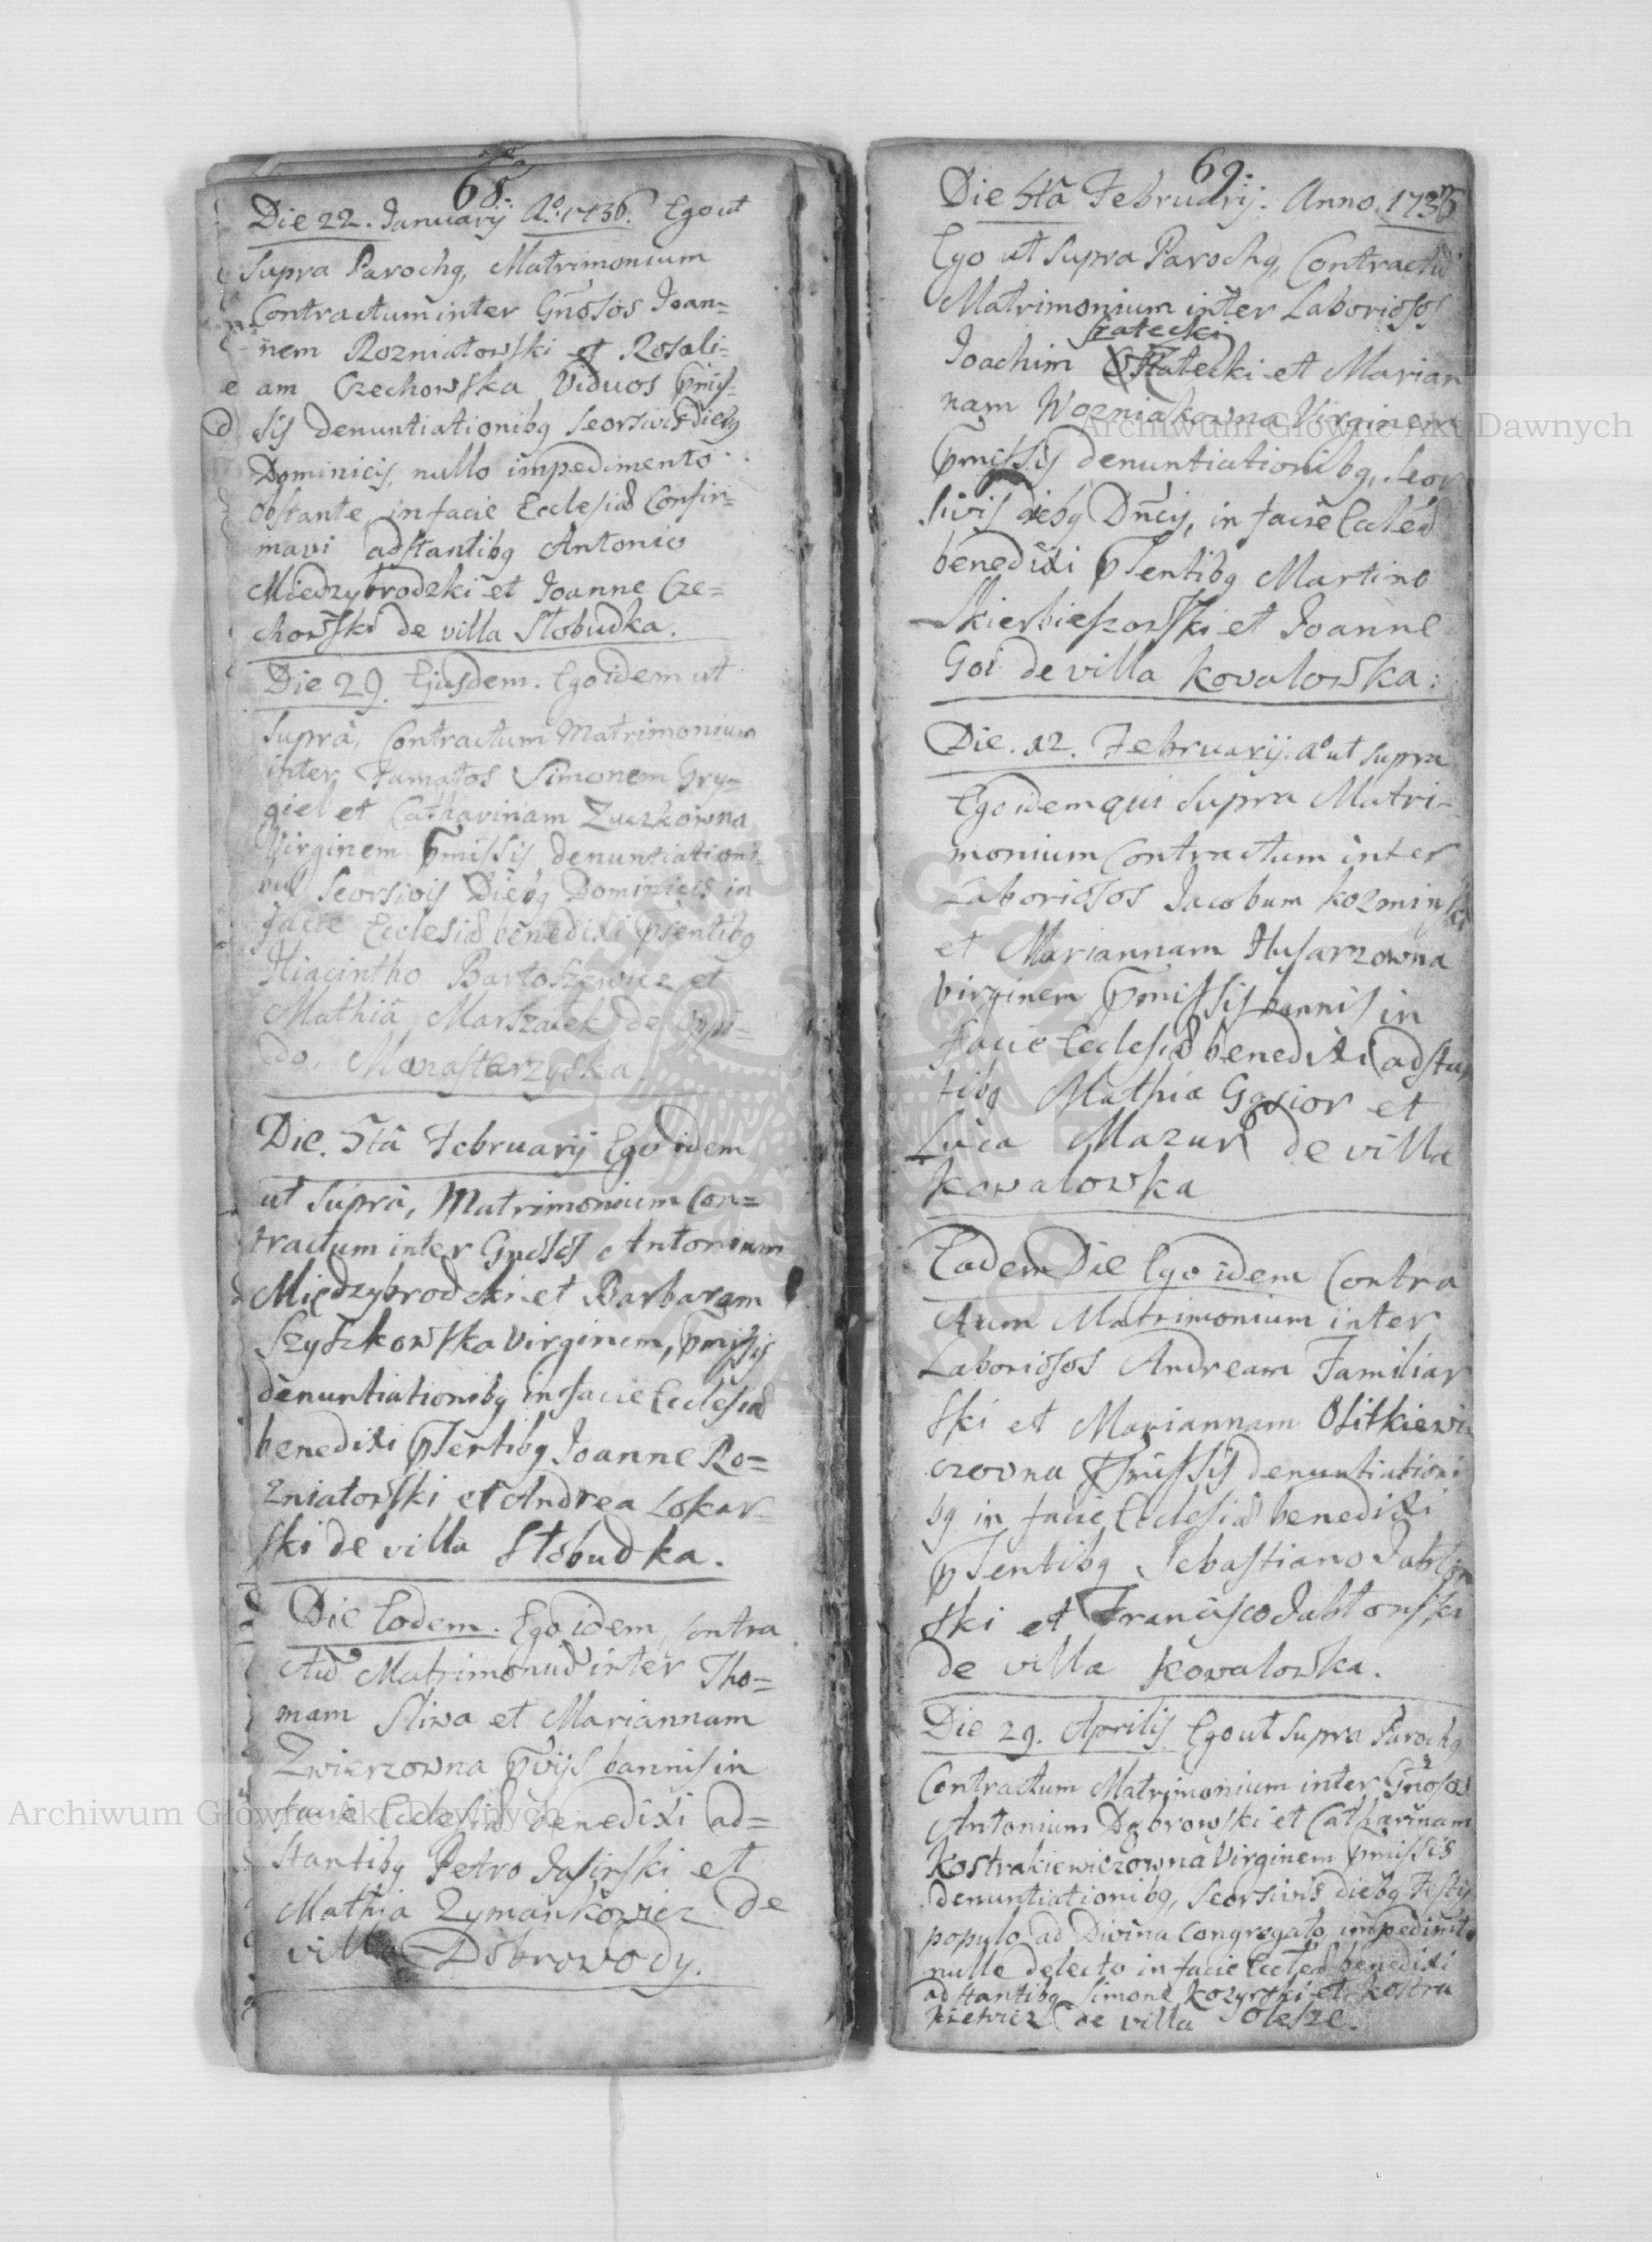 68.
Die 22. Januarij Ao. 1736. Ego ut
supra Parochq, Matrimonium
Contractum inter Gnosos Joan=
nem Rozniatowski et Rosali=
am Czechowska Viduos pmis=
sis denuntiationibq seorsivis diebq
Dominicis, nullo impedimento
obstante in facie Ecclesiæ Confir=
mavi adstantibq Antonio
Miedzybrodzki et Joanne Cze=
chowski de villa Słobudka.
Die 29. Ejusdem. Ego idem ut
supra, Contractum Matrimonium
inter Famatos Simonem Gry=
giel et Catharinam Zuczkowna
Virginem pmissis denuntiationi=
bus seorsivis Diebq Dominicis in
facie Ecclesiæ benedixi psentibq
Hiacintho Bartoszewicz et
Mathia Marszałek de Oppi=
do. Monasterzyska.
Die. 5ta Februarij Ego idem
ut supra, Matrimonium Con=
tractum inter Gnosos Antonium
Międzybrodzki et Barbaram
Szyszkowska Virginem, pmissis
denuntiationibq in facie Ecclesiæ
benedixi psentibq Joanne Ro=
zniatowski et Andrea Lokar=
ski de villa Słobudka.
Die Eodem. Ego idem, contra
ctu Matrimoniu inter Tho=
mam Sliwa et Mariannam
Zwierzowna pvijs bannis in
facie Ecclesiæ benedixi ad=
stantibq Petro Jasinski et
Mathia Zymankowicz de
villa Dobrowody.
69.
Die 5ta Februarij. Anno. 1736
Ego ut supra Parochq, Contractu
Matrimonium inter Laboriosos
Szatecki
Joachim et Marian
nam Wozniakowna Virginem
pmissis denuntiationibq, seor
sivis diebq Dncis, in facie Eccleæ
benedixi psentibq Martino
Skierbieszowski et Joanne
Goi de villa Kowalowska.
Die. 12. Februarij. Ao ut supra
Ego idem qui supra Matri=
monium Contractum inter
Laboriosos Jacobum Kozminski
et Mariannam Husarzowna
Virginem pmissis bannis in
facie Ecclesiæ benedixi adstan
tibq Mathia Gąsior et
Luca Mazur de villa
Kowalowka
Eadem Die Ego idem Contra
ctum Matrimonium inter
Laboriosos Andream Familiar
ski et Mariannam Ositkiewi
czowna pmissis denuntiationi
bq in facie Ecclesiæ benedixi
psentibq Sebastiano Jabłon
ski et Francisco Jabłonski
de villa Kowalowka.
Die 29. Aprilis Ego ut supra Parochq
Contractum Matrimonium inter Gnosos
Antonium Dąbrowski et Catharinam
Kostrakiewiczowna Virginem pmissis
denuntiationibq, seorsivis diebq Festis
populo ad Divina Congregato, impedimto
nullo detecto in facie Eccleæ benedixi
adstantibq Simone Kozyrski et Kostra
kiewicz de villa Olesze.
Archiwum Główne Akt Dawnych
Archiwum Główne Akt Dawnych